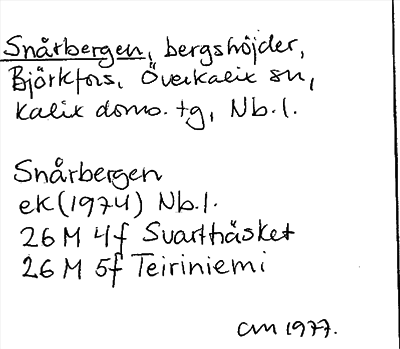 Snårbergen, bergshöjder,
Björkfors, Överkalix sn,
Kalix doms. tg, Nb. l.
Snårbergen
ek (1974) Nb. l.
26 M 4f Svarthäsket
26 M 5f Teiriniemi
CM 1977.